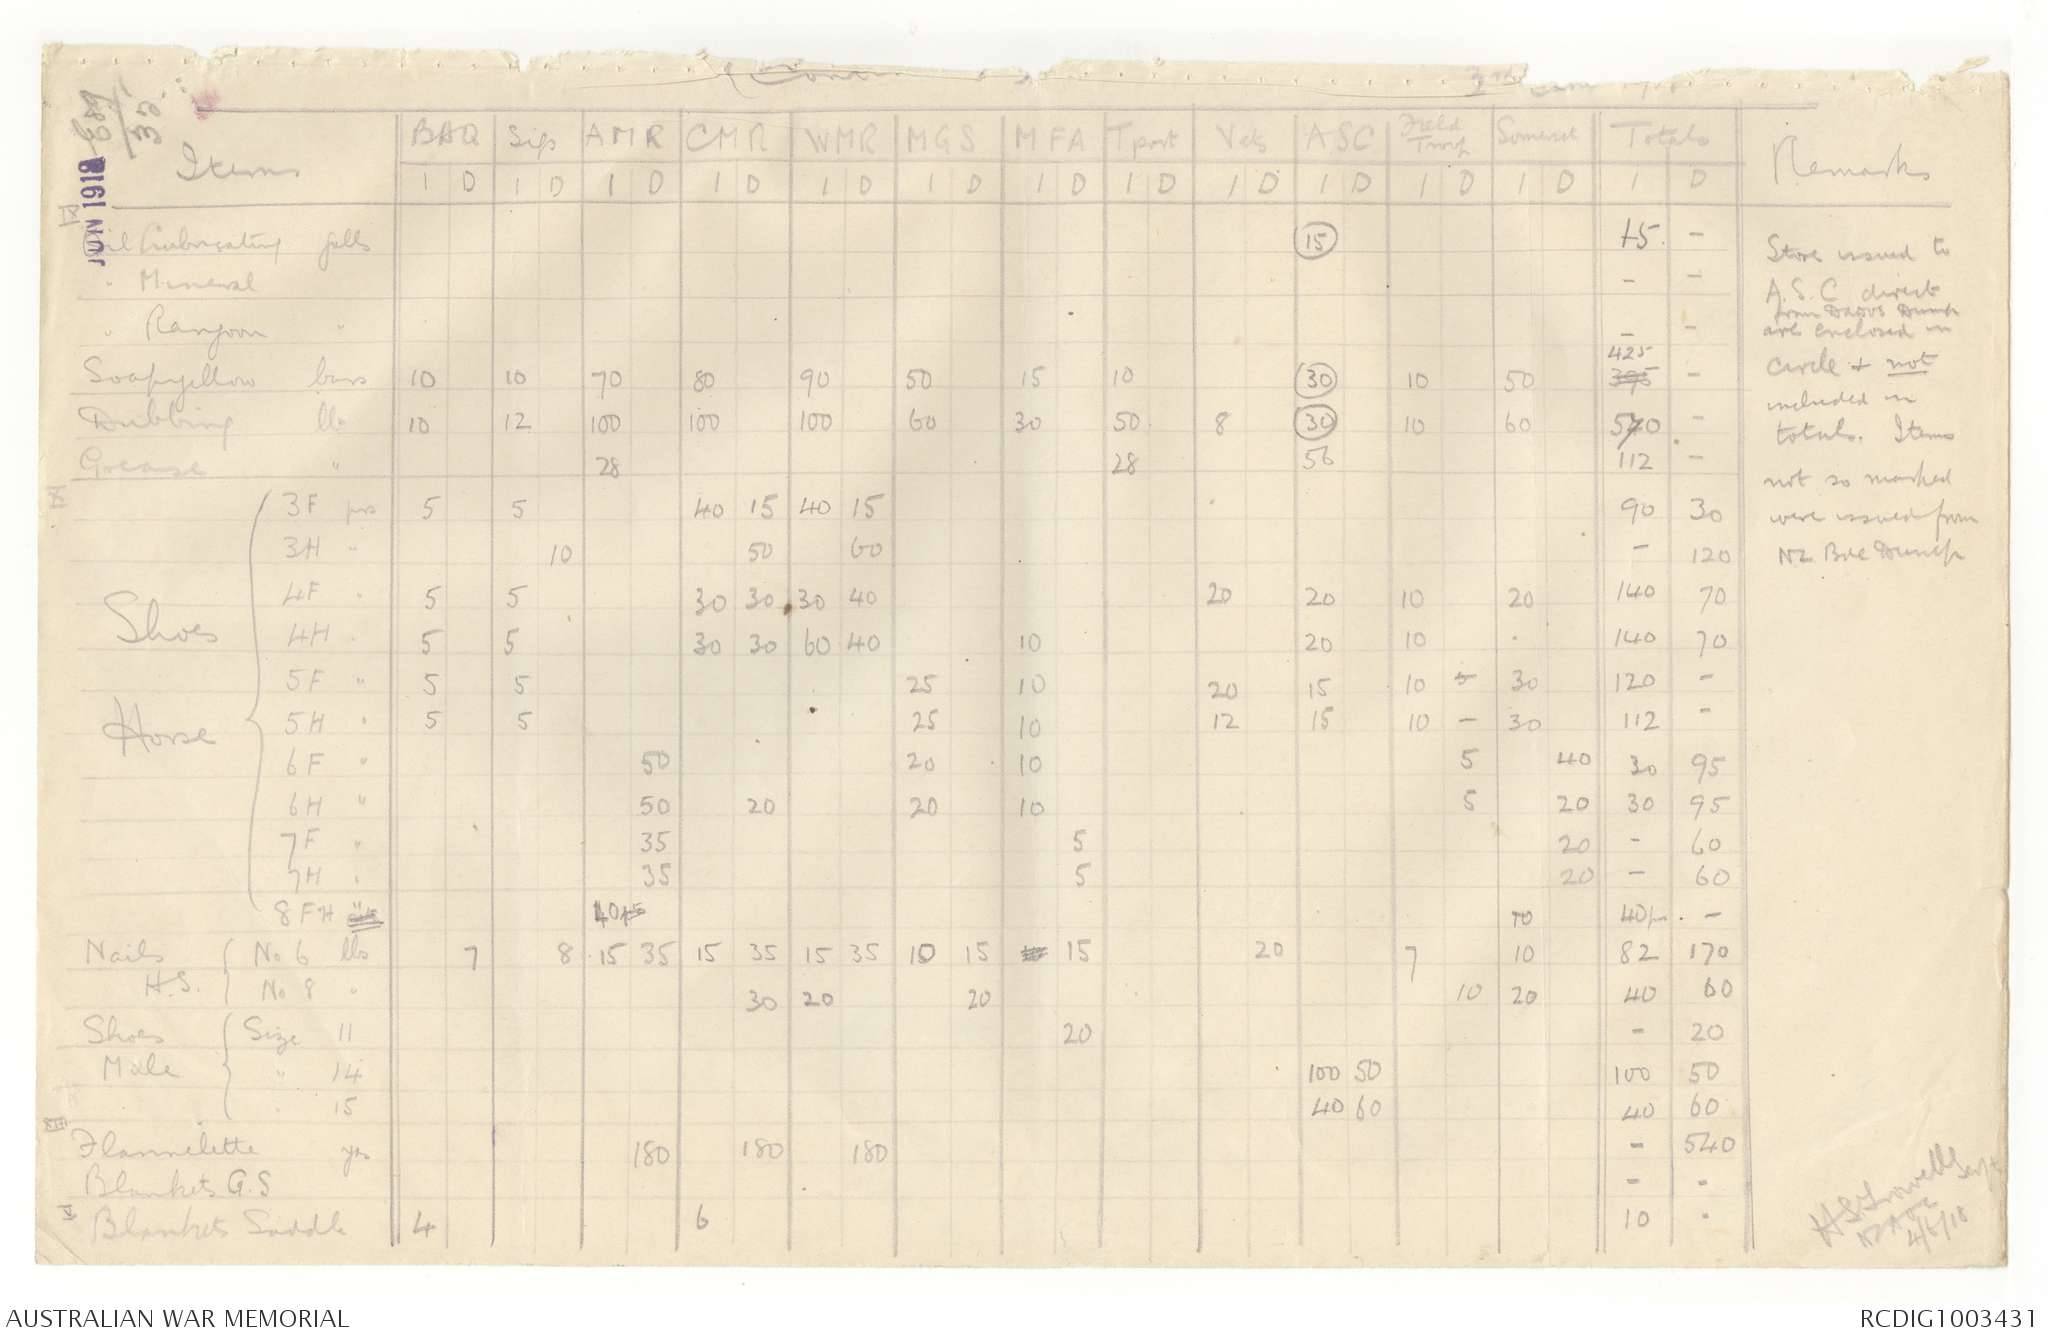 JUN 1918
Items BHQ Sigs AMR CMR WMR MGS MFA Tport Vets ASC Field Troop Somerset Totals Remarks
I D I D I D I D I D I D I D I D I D I D I D I D I D
IX
Oil Lubricating galls (15) 15 -
" Mineral - -
" Rangoon " - -
Soap yellow bars 10 10 70 80 90 50 15 10 (30) 10 50 395 425 -
Dubbing lbs 10 12 100 100 100 60 30 50 8 (30) 10 60 540 -
Grease " 28 28 56 112 -
X
Shoes Horse
3F prs 5 5 40 15 40 15 90 30
3H " 10 50 60 - 120
4F " 5 5 30 30 30 40 20 20 10 20 140 70
4H " 5 5 30 30 60 40 10 20 10 140 70
5F " 5 5 25 10 20 15 10 5 30 120 -
5H " 5 5 25 10 12 15 10 - 30 112 -
6F " 50 20 10 5 40 30 95
6H " 50 20 20 10 5 20 30 95
7F " 35 5 20 - 60
7H " 35 5 20 - 60
8 FH 40 prs 40 prs. -
Nails H.S. No 6 lbs 7 8 15 35 15 35 15 35 10 15 15 20 7 10 82 170
No 8 " 30 20 20 10 20 40 60
Shoes Mule Size 11 20 - 20
" 14 100 50 100 50
" 15 40 60 40 60
XIII
Flannelette yds 180 180 180 - 540
Blankets G.S - -
V
Blankets Saddle 4 6 10 -
Store issued to
A.S.C direct
from DADOS Dump
are enclosed in
circle & not
included in
totals. Items
not so marked
were issued from
NZ Bde Dump
4/6/18
AUSTRALIAN WAR MEMORIAL
RCDIG1003431